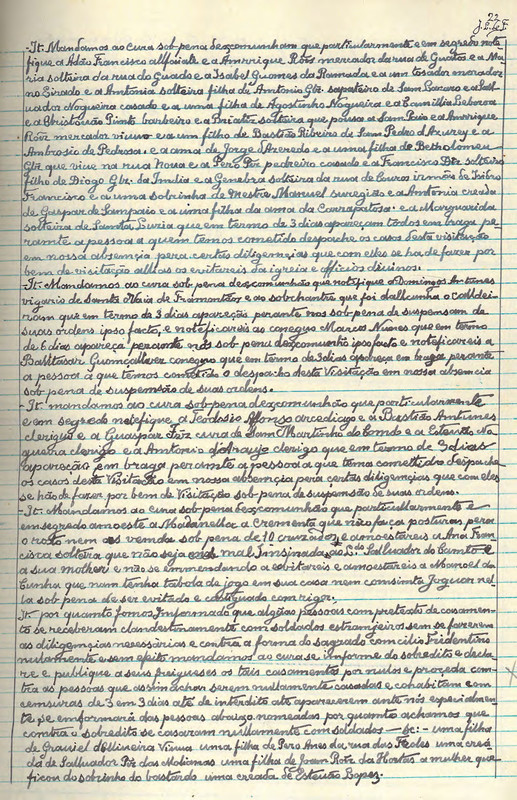 22
J. P. L. F.
-It. Mandamos ao cura sob pena dexcomunham que particularmente e em segredo note
fique a Adão Francisco alfaiate e a Amrrique Roiz mercador da rua de Guatos e a Ma
ria solteira da rua do Guado e a Isabel Guomes da Ramada e a um tosador morador
no Eirado e a Amtonia solteira filha de Amtonio Glz. sapateiro de Sam Lazaro e a Sal
uador Nogueira casado e a uma filha de Agostinho Nogueira e a Camillia Beberoa
e a Christouão Pimto barbeiro e a Briatiz solteira que pousa a Sam Paio e Amrrique
Roiz mercador viuvo e a um filho de Bastião Ribeiro de Sam Pedro d'Azurey e a
Ambrosio de Pedrosa e a ama de Jorge d'Azeredo e a uma filha de Betholomeu
Glz. que viue na rua Noua e a Pero Piz pedreiro casado e a Francisco Diz solteiro
filho de Diogo Glz. da India e a Genebra solteira da rua de Couros irmã de Isibro
Francisco e a uma sobrinha de mestre Manuel surugião e a Antonia creada
de Gaspar de Sampaio e a uma filha da ama da Carrapatosa e a Marguarida
solteira de Samta Luzia que em termo de 3 dias apareçam todos em braga pe
ramte a pessoa a quem temos cometido despache os casos desta visitação
em nossa absemçia pera certas diligemçias que com elles se ha de fazer por
bem de visitação alias os evitareis da igreia e officios divinos.
-It. Mandamos ao cura sob pena dexcomunhão que notifique a Domingos Antunes
vigario de Samta Maia de Framontãos e ao sobchantre que foi dalcunha o Caldei
ram que em termo de 3 dias apareção perante nos sob pena de suspensam de
suas ordens ipso facto, e noteficareis ao conego Marcos Nunes que em termo
de 6 dias apareça perante nós sob pena dexcomunhão ipso facto e noteficareis a
Balltasar Guomçallvez conego que em termo de 3 dias apareça em braga perante
a pessoa a que temos cometido o despacho desta Visitação em nossa absencia
sob pena de suspensão de suas ordens.
-It. mandamos ao cura sob pena dexcomunhão que particularmente
e em segredo notefique a Teodosio Affonso arcediago e a Bastião Antunes
clerigo e a Guaspar Fiz cura de Sam Martinho do Comdo e a Esteuão No
gueira clerigo e a Amtonio d'Araujo clerigo que em termo de 3 dias
apareção em braga peramte a pessoa a que temos comettido despache
os casos desta Visitação em nossa absemçia pera certas diligemçias que com eles
se hão de fazer por bem de Visitação sob pena de suspensão de suas ordens.
-It. Mandamos ao cura sob pena dexcomunhão que particularmente e
em segredo amoeste a Madanella a Cremente que não faça posturas pera
o rosto nem as venda sob pena de 10 cruzados e amoestareis a Ana Fran
cisca solteira que não seja mal Imsinada ao L.do Salluador do Camto e
a sua mother e não se emmendando a evitareis e amoestareis a Manoel da
Cunha que nam tenha tabola de jogo em sua casa nem comsimta Joguar nel
la sob pena de ser evitado e castiguado com rigor.
It. por quanto fomos Informado que algũas pessoas com pretexto de casamen-
to se receberam clandestinamente com soldados estrangeiros sem se fazerem
as diligemçias necessárias e contra a forma do sagrado comcilio Tridentino
nulamente e sem efeito mandamos ao cura se informe do sobredito e decla
re e publique a seus freigueses os tais casamentos por nulos e proçeda con-
tra as pessoas que assim achar serem nullamente casadas e cohabitam com
censuras de 3 em 3 dias até de interdito até aparecerem ante nós especialmen
te se emformará das pessoas abaixo nomeadas por quanto achamos que
contra o sobredito se casaram nullamente com soldados — Sc: — uma filha
de Grauiel d'Olliueira Viuua uma filha de Pero Anes da rua das Flores uma crea
da de Salluador Piz das Molianas uma filha de Joam Roiz da Hortas a mulher que
ficou do sobrinho do bastardo uma creada de Esteuão Lopez.